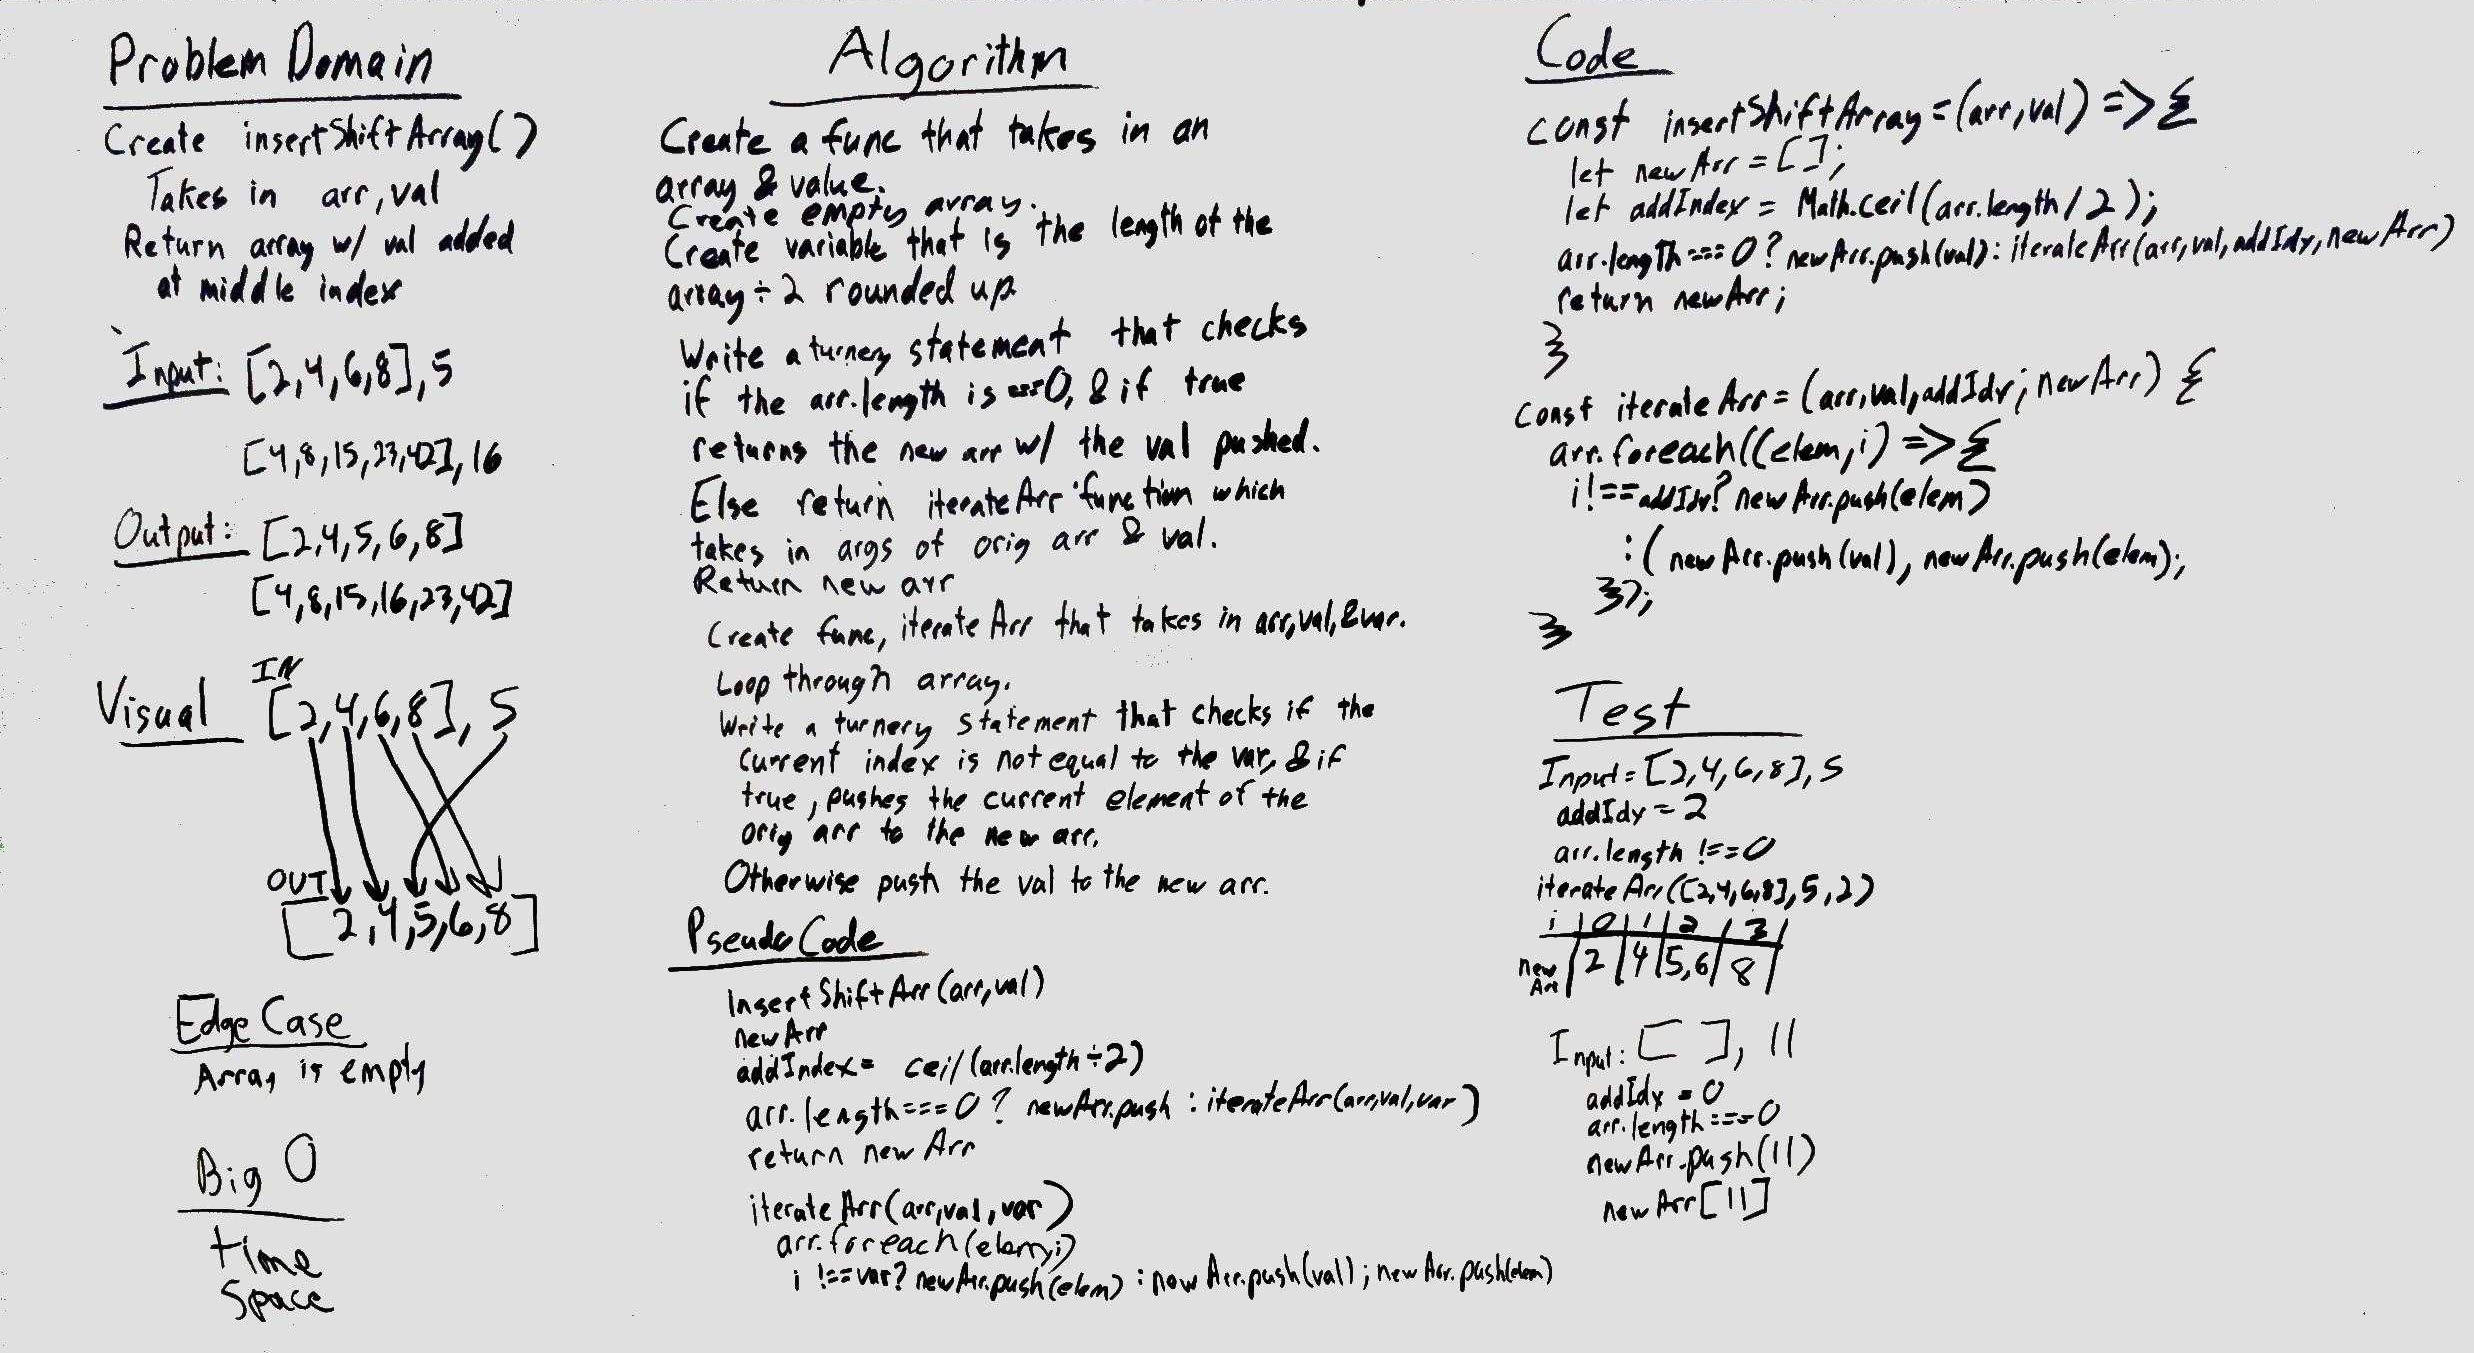 Problem Domain
Create insertShiftArray()
Takes in arr, val
Return array w/ val added
at middle index
Input: [2,4,6,8], 5
[4,8,15,23,42], 16
Output: [2,4,5,6,8]
[4,8,15,16,23,42]
Visual
IN
[2,4,6,8], 5
OUT
[2,4,5,6,8]
Edge Case
Array is empty
Big O
time
Space
Algorithm
Create a func that takes in an
array & value.
Create empty array.
Create variable that is the length of the
array ÷ 2 rounded up
Write a turnery statement that checks
if the arr.length is ===0, & if true
returns the new arr w/ the val pushed.
Else return iterateArr function which
takes in args of orig arr & val.
Return new arr
Create func, iterateArr that takes in arr,val,&var.
Loop through array.
Write a turnery statement that checks if the
current index is not equal to the var, & if
true, pushes the current element of the
orig arr to the new arr.
Otherwise push the val to the new arr.
Pseudo Code
InsertShiftArr(arr,val)
newArr
addIndex= ceil(arr.length÷2)
arr.length===0? newArr.push : iterateArr(arr,val,var)
return newArr
iterateArr(arr,val,var)
arr.foreach(elem,i)
i !==var? newArr.push(elem) : newArr.push(val); newArr.push(elem)
Code
const insertShiftArray=(arr,val) => {
let newArr = [];
let addIndex = Math.ceil(arr.length/2);
arr.length===0? newArr.push(val): iterateArr(arr,val,addIdx,newArr)
return newArr;
}
const iterateArr= (arr,val,addIdx,newArr) {
arr.foreach((elem,i) => {
i!==addIdx? newArr.push(elem)
:( newArr.push(val), newArr.push(elem);
});
}
Test
Input=[2,4,6,8],5
addIdx = 2
arr.length !==0
iterateArr([2,4,6,8],5,2)
i | 0 | 1 | 2 | 3 |
new Arr | 2 | 4 | 5,6 | 8 |
Input: [ ], 11
addIdx = 0
arr.length===0
newArr.push(11)
newArr[11]